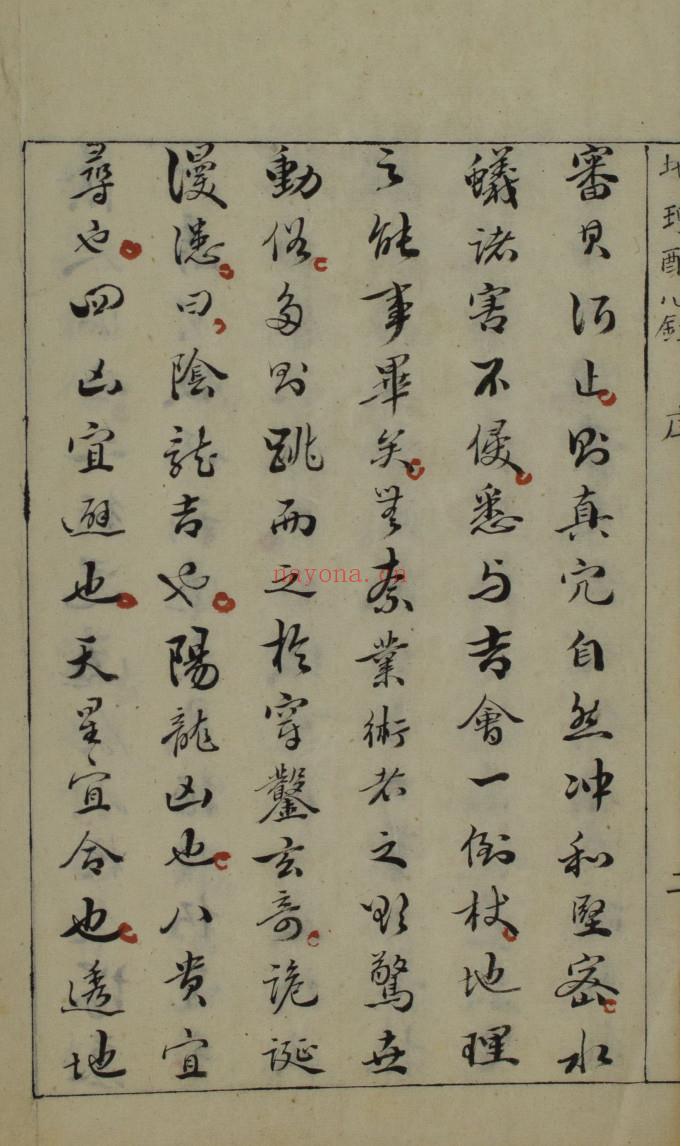 地理
二
審其所止則真穴自然冲和堅密水
蟻諸害不侵悉与吉會一倒杖地理
之能事畢矣無奈業術者之欲驚世
動俗多則跳而之於穿鑿玄奇詭誕
漫漶曰陰龍吉也陽龍凶也八貴宜
尋也四凶宜避也天星宜合也透地
nayona.cn